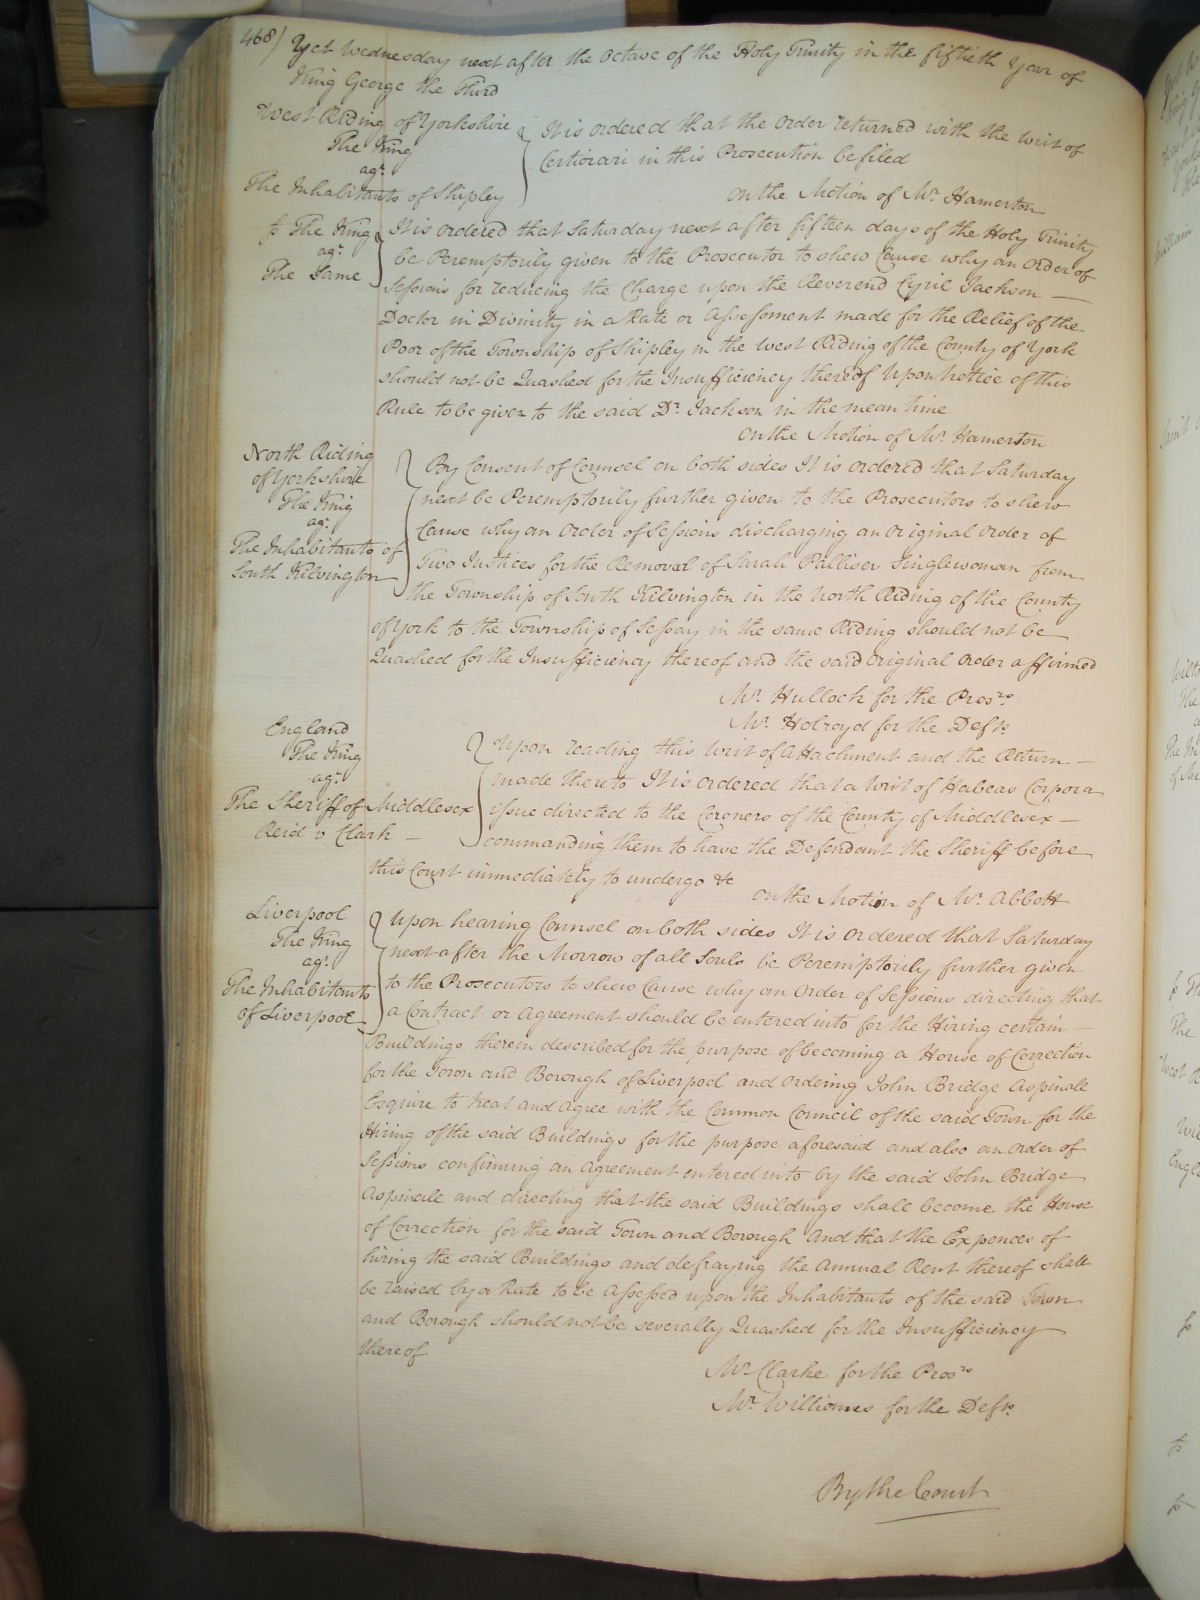 468/ Yet Wednesday next after the Octave of the Holy Trinity in the fiftieth Year of
King George the Third
West Riding of Yorkshire
The King
agt.
The Inhabitants of Shipley
It is ordered that the Order returned with the Writ of
Certiorari in this Prosecution be filed
On the Motion of Mr. Hamerton
The King
agt.
The Same
It is ordered that Saturday next after fifteen days of the Holy Trinity
be Peremptorily given to the Prosecutor to shew Cause why an Order of
Sessions for reducing the Charge upon the Reverend Cyril Jackson
Doctor in Divinity in a Rate or Assessment made for the Relief of the
Poor of the Township of Shipley in the West Riding of the County of York
should not be Quashed for the Insufficiency thereof Upon notice of this
Rule to be given to the said Dr. Jackson in the mean time
On the Motion of Mr. Hamerton
North Riding
of Yorkshire
The King
agt.
The Inhabitants of
South Kilvington
By Consent of Counsel on both sides It is ordered that Saturday
next be Peremptorily further given to the Prosecutors to shew
Cause why an Order of Sessions discharging an Original Order of
Two Justices for the Removal of Sarah Palliser Singlewoman from
the Township of South Kilvington in the North Riding of the County
of York to the Township of Sessay in the same Riding should not be
Quashed for the Insufficiency thereof and the said Original Order affirmed
Mr. Hullock for the Prosrs.
Mr. Holroyd for the Defts.
England
The King
agt.
The Sheriff of Middlesex
Reid v Clark
Upon reading this Writ of Attachment and the Return
made thereto It is ordered that a Writ of Habeas Corpora
issue directed to the Coroners of the County of Middlesex
commanding them to have the Defendant the Sheriff before
this Court immediately to undergo &c
On the Motion of Mr. Abbott
Liverpool
The King
agt.
The Inhabitants
of Liverpool
Upon hearing Counsel on both sides It is ordered that Saturday
next after the Morrow of all Souls be Peremptorily further given
to the Prosecutors to shew Cause why an Order of Sessions directing that
a Contract or Agreement should be entered into for the Hiring certain
Buildings therein described for the purpose of becoming a House of Correction
for the Town and Borough of Liverpool and Ordering John Bridge Aspinall
Esquire to treat and Agree with the Common Council of the said Town for the
Hiring of the said Buildings for the purpose aforesaid and also an Order of
Sessions confirming an Agreement entered into by the said John Bridge
Aspinall and directing that the said Buildings shall become the House
of Correction for the said Town and Borough And that the Expences of
hiring the said Buildings and defraying the Annual Rent thereof shall
be raised by a Rate to be Assessed upon the Inhabitants of the said Town
and Borough should not be severally Quashed for the Insufficiency
thereof
Mr. Clarke for the Prosrs
Mr. Williams for the Defts.
By the Court